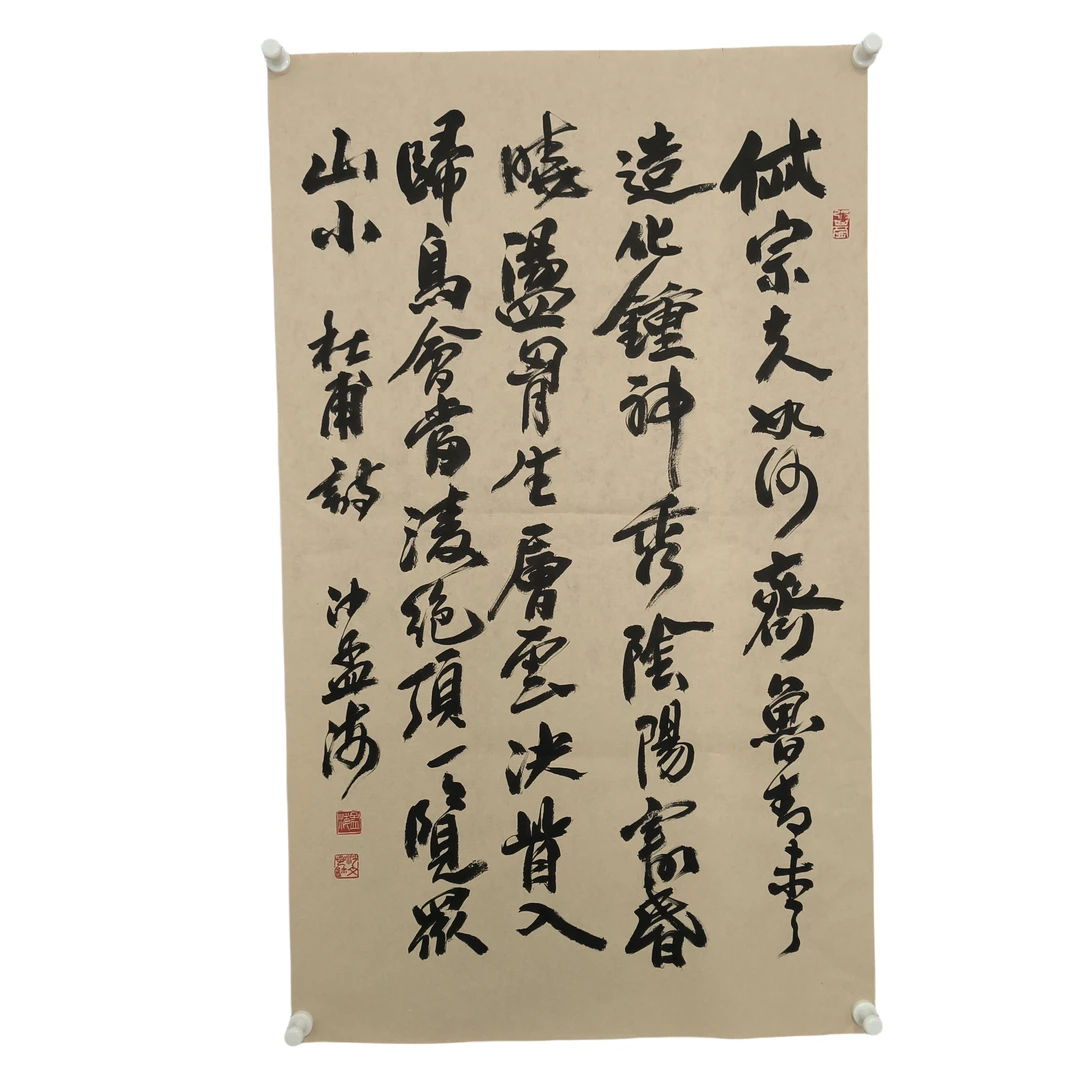 岱宗夫如何齊魯青未了
造化鍾神秀陰陽割昏
曉盪胷生層雲決眥入
歸鳥會當凌絕頂一覽眾
山小 杜甫詩 沙孟海